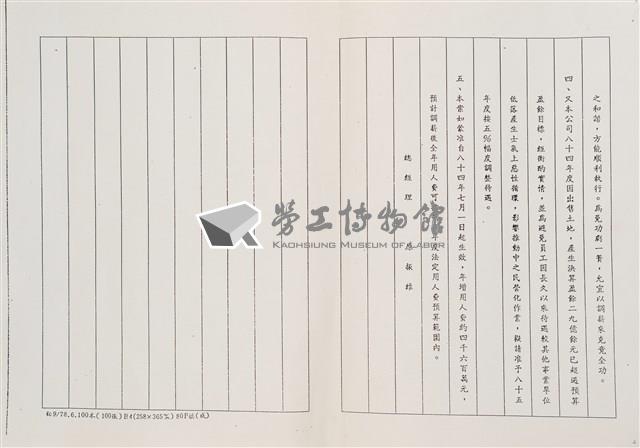 之和諧，方能順利執行。為免功虧一簣，允宜以調薪來克竟全功。
四、又本公司八十四年度因出售土地，產生決算盈餘二九億餘元已超過預算
盈餘目標，經衡酌實情，並為避免員工因長久以來待遇較其他事業單位
低落產生士氣上惡性循環，影響推動中之民營化作業，擬請准予八十五
年度按五%幅度調整待遇。
五、本案如蒙准自八十四年七月一日起生效，年增用人費約四千六百萬元，
預計調薪後全年用人費可 年度法定用人費預算範圍內。
總經理 振
勞工博物館
KAOHSIUNG MUSEUM OF LABOR
和9/78.6.100本(100張)B4(258×365%)80P